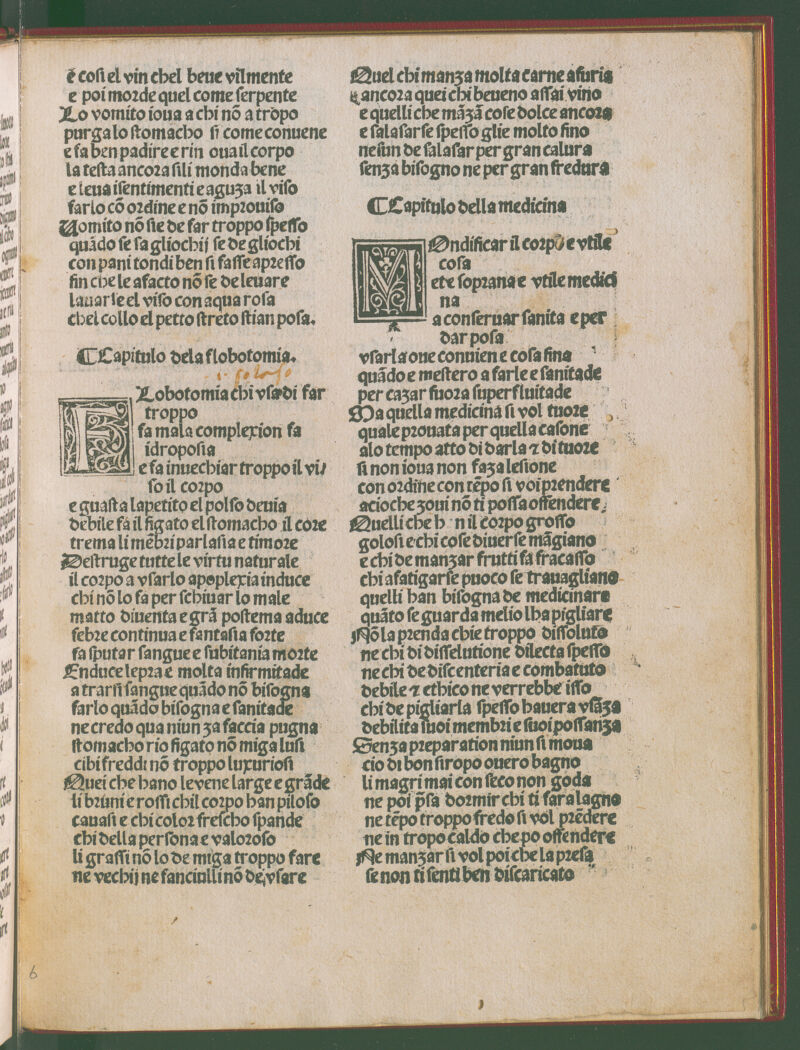 ẽ coſi el vin chel beue vilmente
e poi moꝛde quel come ſerpente
Lo vomito ioua a chi nõ a tropo
purga lo ſtomacho ſi come conuene
e fa ben padire e rin oua il corpo
la teſta ancoꝛa ſili monda bene
e leua iſentimenti e aguza il viſo
farlo cõ oꝛdine e nõ impꝛouiſo
Uomito nõ ſie de far troppo ſpeſſo
quãdo ſe fa gliochij ſe de gliochi
con pani tondi ben ſi faſſe apꝛeſſo
fin che le afacto nõ ſe de leuare
lauarſe el viſo con aqua roſa
chel collo el petto ſtreto ſtian poſa.
¶Capitulo dela flobotomia.
FLobotomia chi vſa di far
troppo
fa mala complexion fa
idropoſia
e fa inuechiar troppo il vi/
ſo il coꝛpo
e guaſta lapetito el polſo deuia
debile fa il figato el ſtomacho il coꝛe
trema li mẽbꝛi parlaſia e timoꝛe
Deſtruge tutte le virtu naturale
il coꝛpo a vſarlo apoplexia induce
chi nõ lo fa per ſchiuar lo male
matto diuenta e grã poſtema aduce
febꝛe continua e fantaſia foꝛte
fa ſputar ſangue e ſubitania moꝛte
Enduce lepꝛa e molta infirmitade
a trarſi ſangue quãdo nõ biſogna
farlo quãdo biſogna e ſanitade
ne credo qua niun za faccia pugna
ſtomacho rio figato nõ miga luſi
cibi freddi nõ troppo luxurioſi
Quei che hano le vene large e grãde
li bꝛuni e roſſi chil coꝛpo han piloſo
cauaſi e chi coloꝛ freſcho ſpande
chi della perſona e valoꝛoſo
li graſſi nõ lo de miga troppo fare
ne vechij ne fanciulli nõ de vſare
Quel chi manza molta carne aſuria
ancoꝛa quei chi beueno aſſai vino
e quelli che mãzã coſe dolce ancoꝛa
e ſalaſarſe ſpeſſo glie molto fino
neſun de ſalaſar per gran calura
ſenza biſogno ne per gran fredura
¶Capitulo della medicina
MOndificar il coꝛpo e vtile
coſa
ete ſopꝛana e vtile medici
na
a conſeruar ſanita e per
dar poſa
vſarla oue conuien e coſa fina
quãdo e meſtero a farle e ſanitade
per cazar fuoꝛa ſuperfluitade
Ma quella medicina ſi vol tuoꝛe
quale pꝛouata per quella caſone
alo tempo atto di darla ⁊ di tuoꝛe
ſi non ioua non faza leſione
con oꝛdine con tẽpo ſi voi pꝛendere
acioche zoui nõ ti poſſa offendere
Quelli che h n il coꝛpo groſſo
goloſi e chi coſe diuerſe mãgiano
e chi de manzar frutti fa fracaſſo
chi afatigarſe puoco ſe trauagliano
quelli han biſogna de medicinare
quãto ſe guarda melio lha pigliare
Nõ la pꝛenda chi e troppo diſſoluto
ne chi di diſſelutione dilecta ſpeſſo
ne chi de diſcenteria e combatuto
debile ⁊ ethico ne verrebbe iſſo
chi de pigliarla ſpeſſo hauera vſãza
debilita ſuoi membꝛi e ſuoi poſſanza
Senza pꝛeparation niun ſi moua
cio di bon ſiropo ouero bagno
li magri mai con ſeco non goda
ne poi pꝛ̃ſa doꝛmir chi ti fara lagno
ne tẽpo troppo fredo ſi vol pꝛẽdere
ne in tropo caldo che po offendere
Ne manzar ſi vol poi che la pꝛeſa
ſe non ti ſenti ben diſcaricato
6